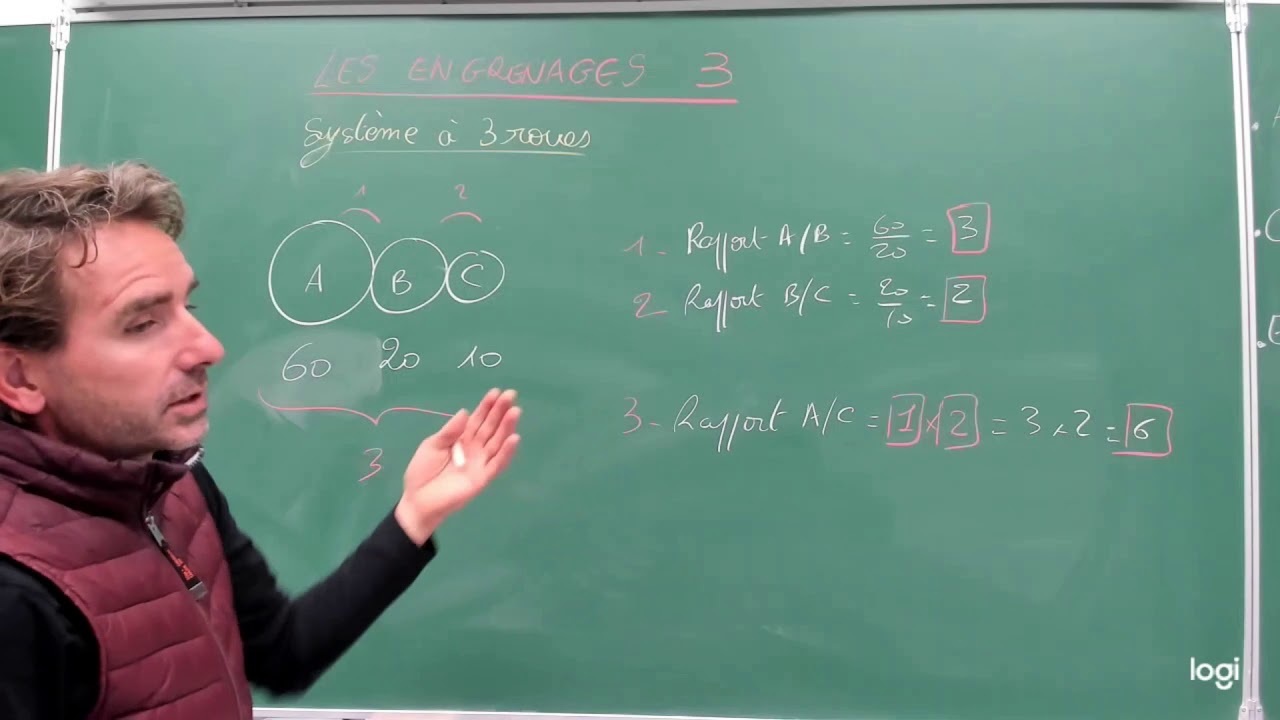 LES ENGRENAGES 3
Système à 3 roues
1 2
A B C
60 20 10
3
1 - Rapport A/B = 60/20 = 3
2 - Rapport B/C = 20/10 = 2
3 - Rapport A/C = 1 x 2 = 3 x 2 = 6
logi